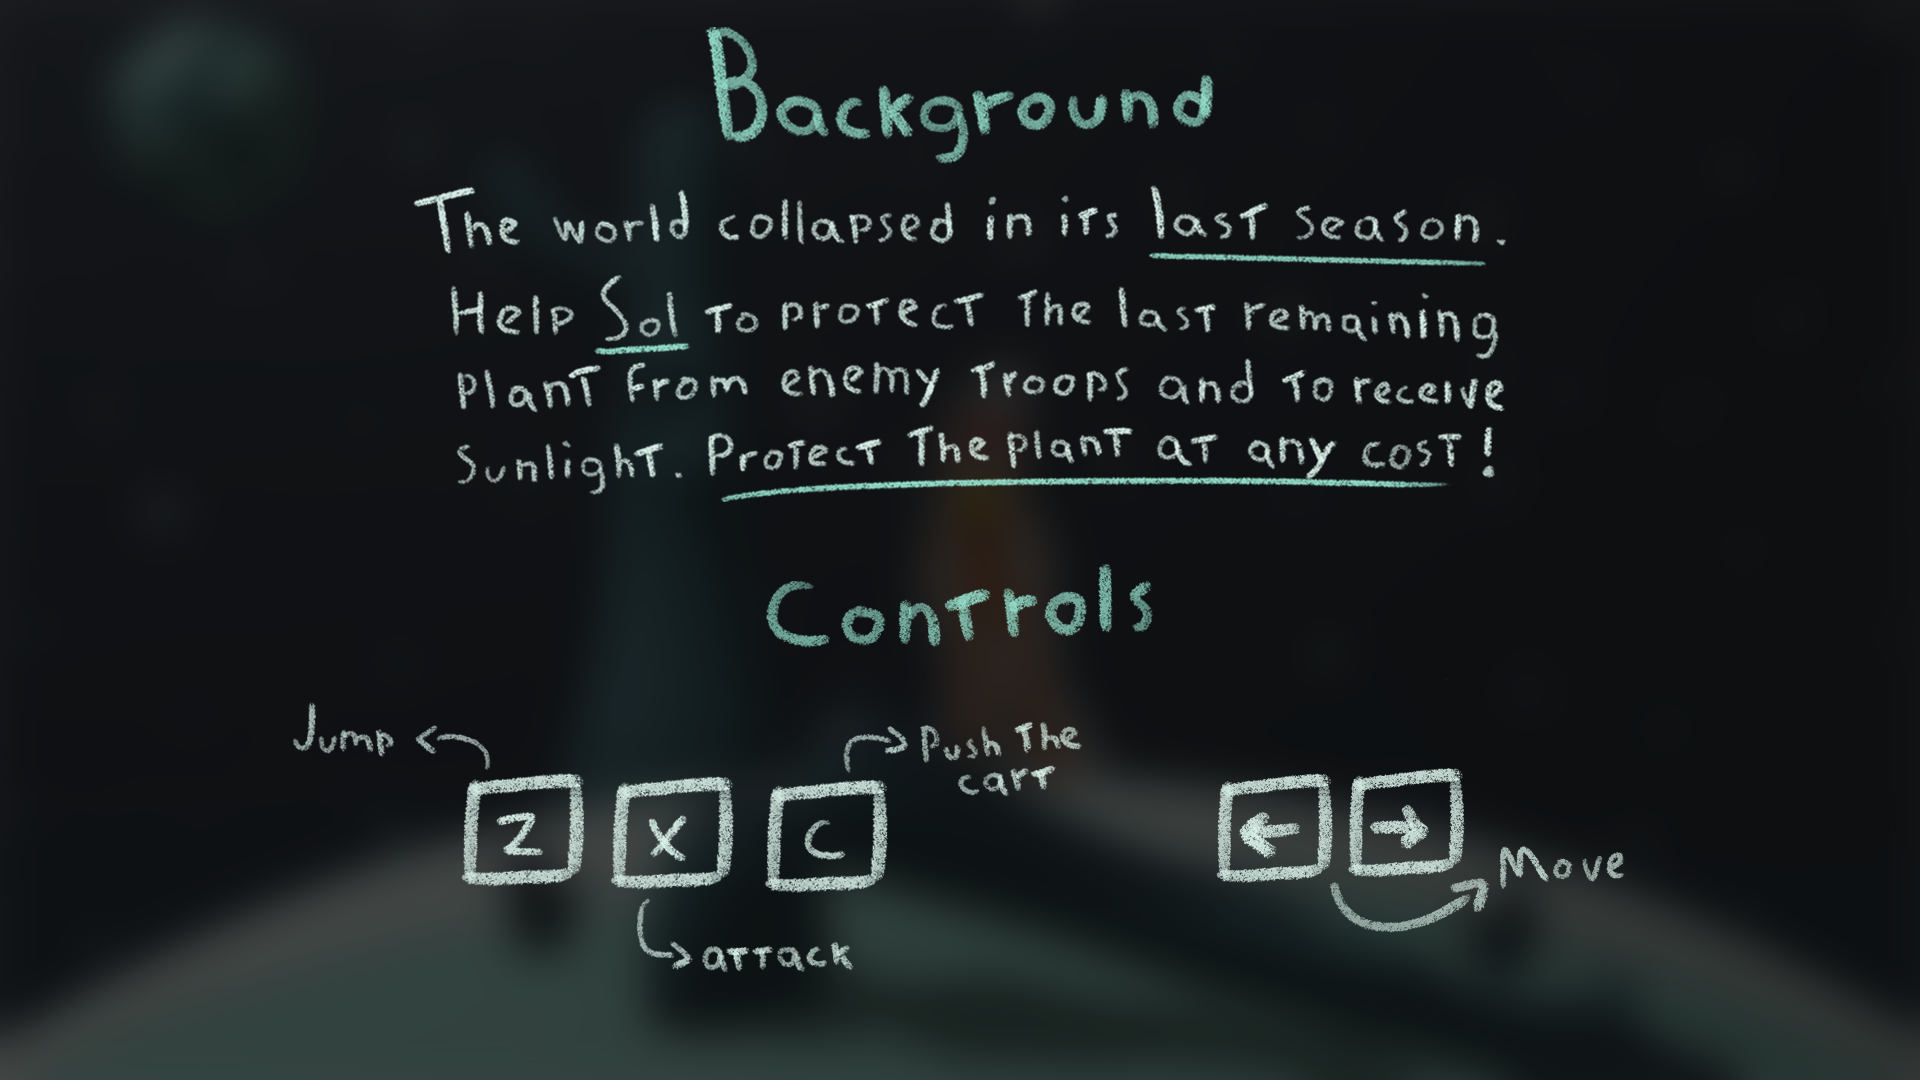 Background
The world collapsed in its last season.
Help Sol to protect the last remaining
plant from enemy troops and to receive
sunlight. Protect the plant at any cost!
Controls
Jump
Push the
cart
Z X C
← →
Move
attack